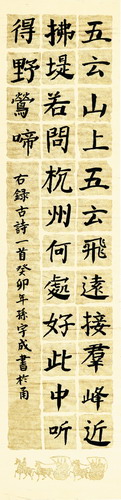 五云山上五云飛遠接羣峰近
拂堤若問杭州何處好此中听
得野鶯啼
右録古詩一首癸卯年孫宇成書於甬